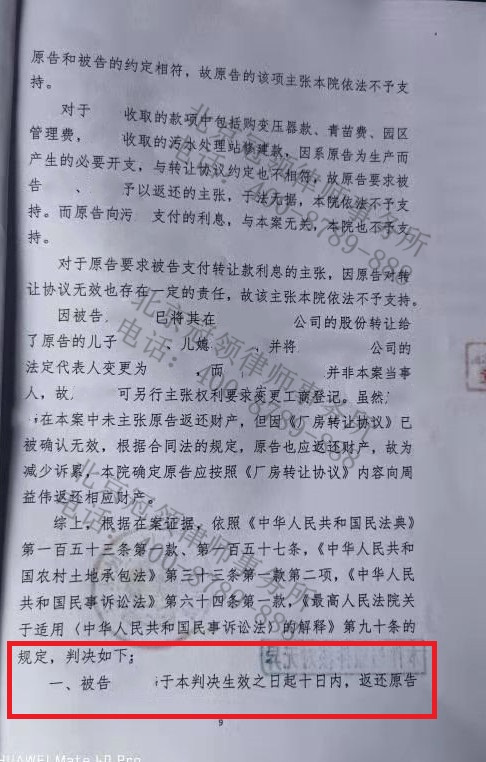 原告和被告的约定相符，故原告的该项主张本院依法不予支
持。
对于 收取的款项中包括购变压器款、青苗费、园区
管理费， 收取的污水处理站修建款，因系原告为生产而
产生的必要开支，与转让协议约定也不相符，故原告要求被
告 、 予以返还的主张，于法无据，本院依法不予支
持。而原告向污 支付的利息，与本案无关，本院也不予支
持。
对于原告要求被告支付转让款利息的主张，因原告对转
让协议无效也存在一定的责任，故该主张本院依法不予支持。
因被告 已将其在 公司的股份转让给
了原告的儿子 、儿媳 、并将 公司的
法定代表人变更为 ，而 并非本案当事
人，故 可另行主张权利要求变更工商登记。虽然
在本案中未主张原告返还财产，但因《厂房转让协议》已
被确认无效，根据合同法的规定，原告也应返还财产，故为
减少诉累，本院确定原告应按照《厂房转让协议》内容向周
益伟返还相应财产。
综上，根据在案证据，依照《中华人民共和国民法典》
第一百五十三条第一款、第一百五十七条，《中华人民共和
国农村土地承包法》第三十三条第一款第二项，《中华人民
共和国民事诉讼法》第六十四条第一款，《最高人民法院关
于适用〈中华人民共和国民事诉讼法〉的解释》第九十条的
规定，判决如下；
一、被告 于本判决生效之日起十日内，返还原告
9
北京冠领律师事务所
电话：400-8789-888
北京冠领律师事务所
电话：400-8789-888
北京冠领律师事务所
电话：400-8789-888
HUAWEI Mate 40 Pro